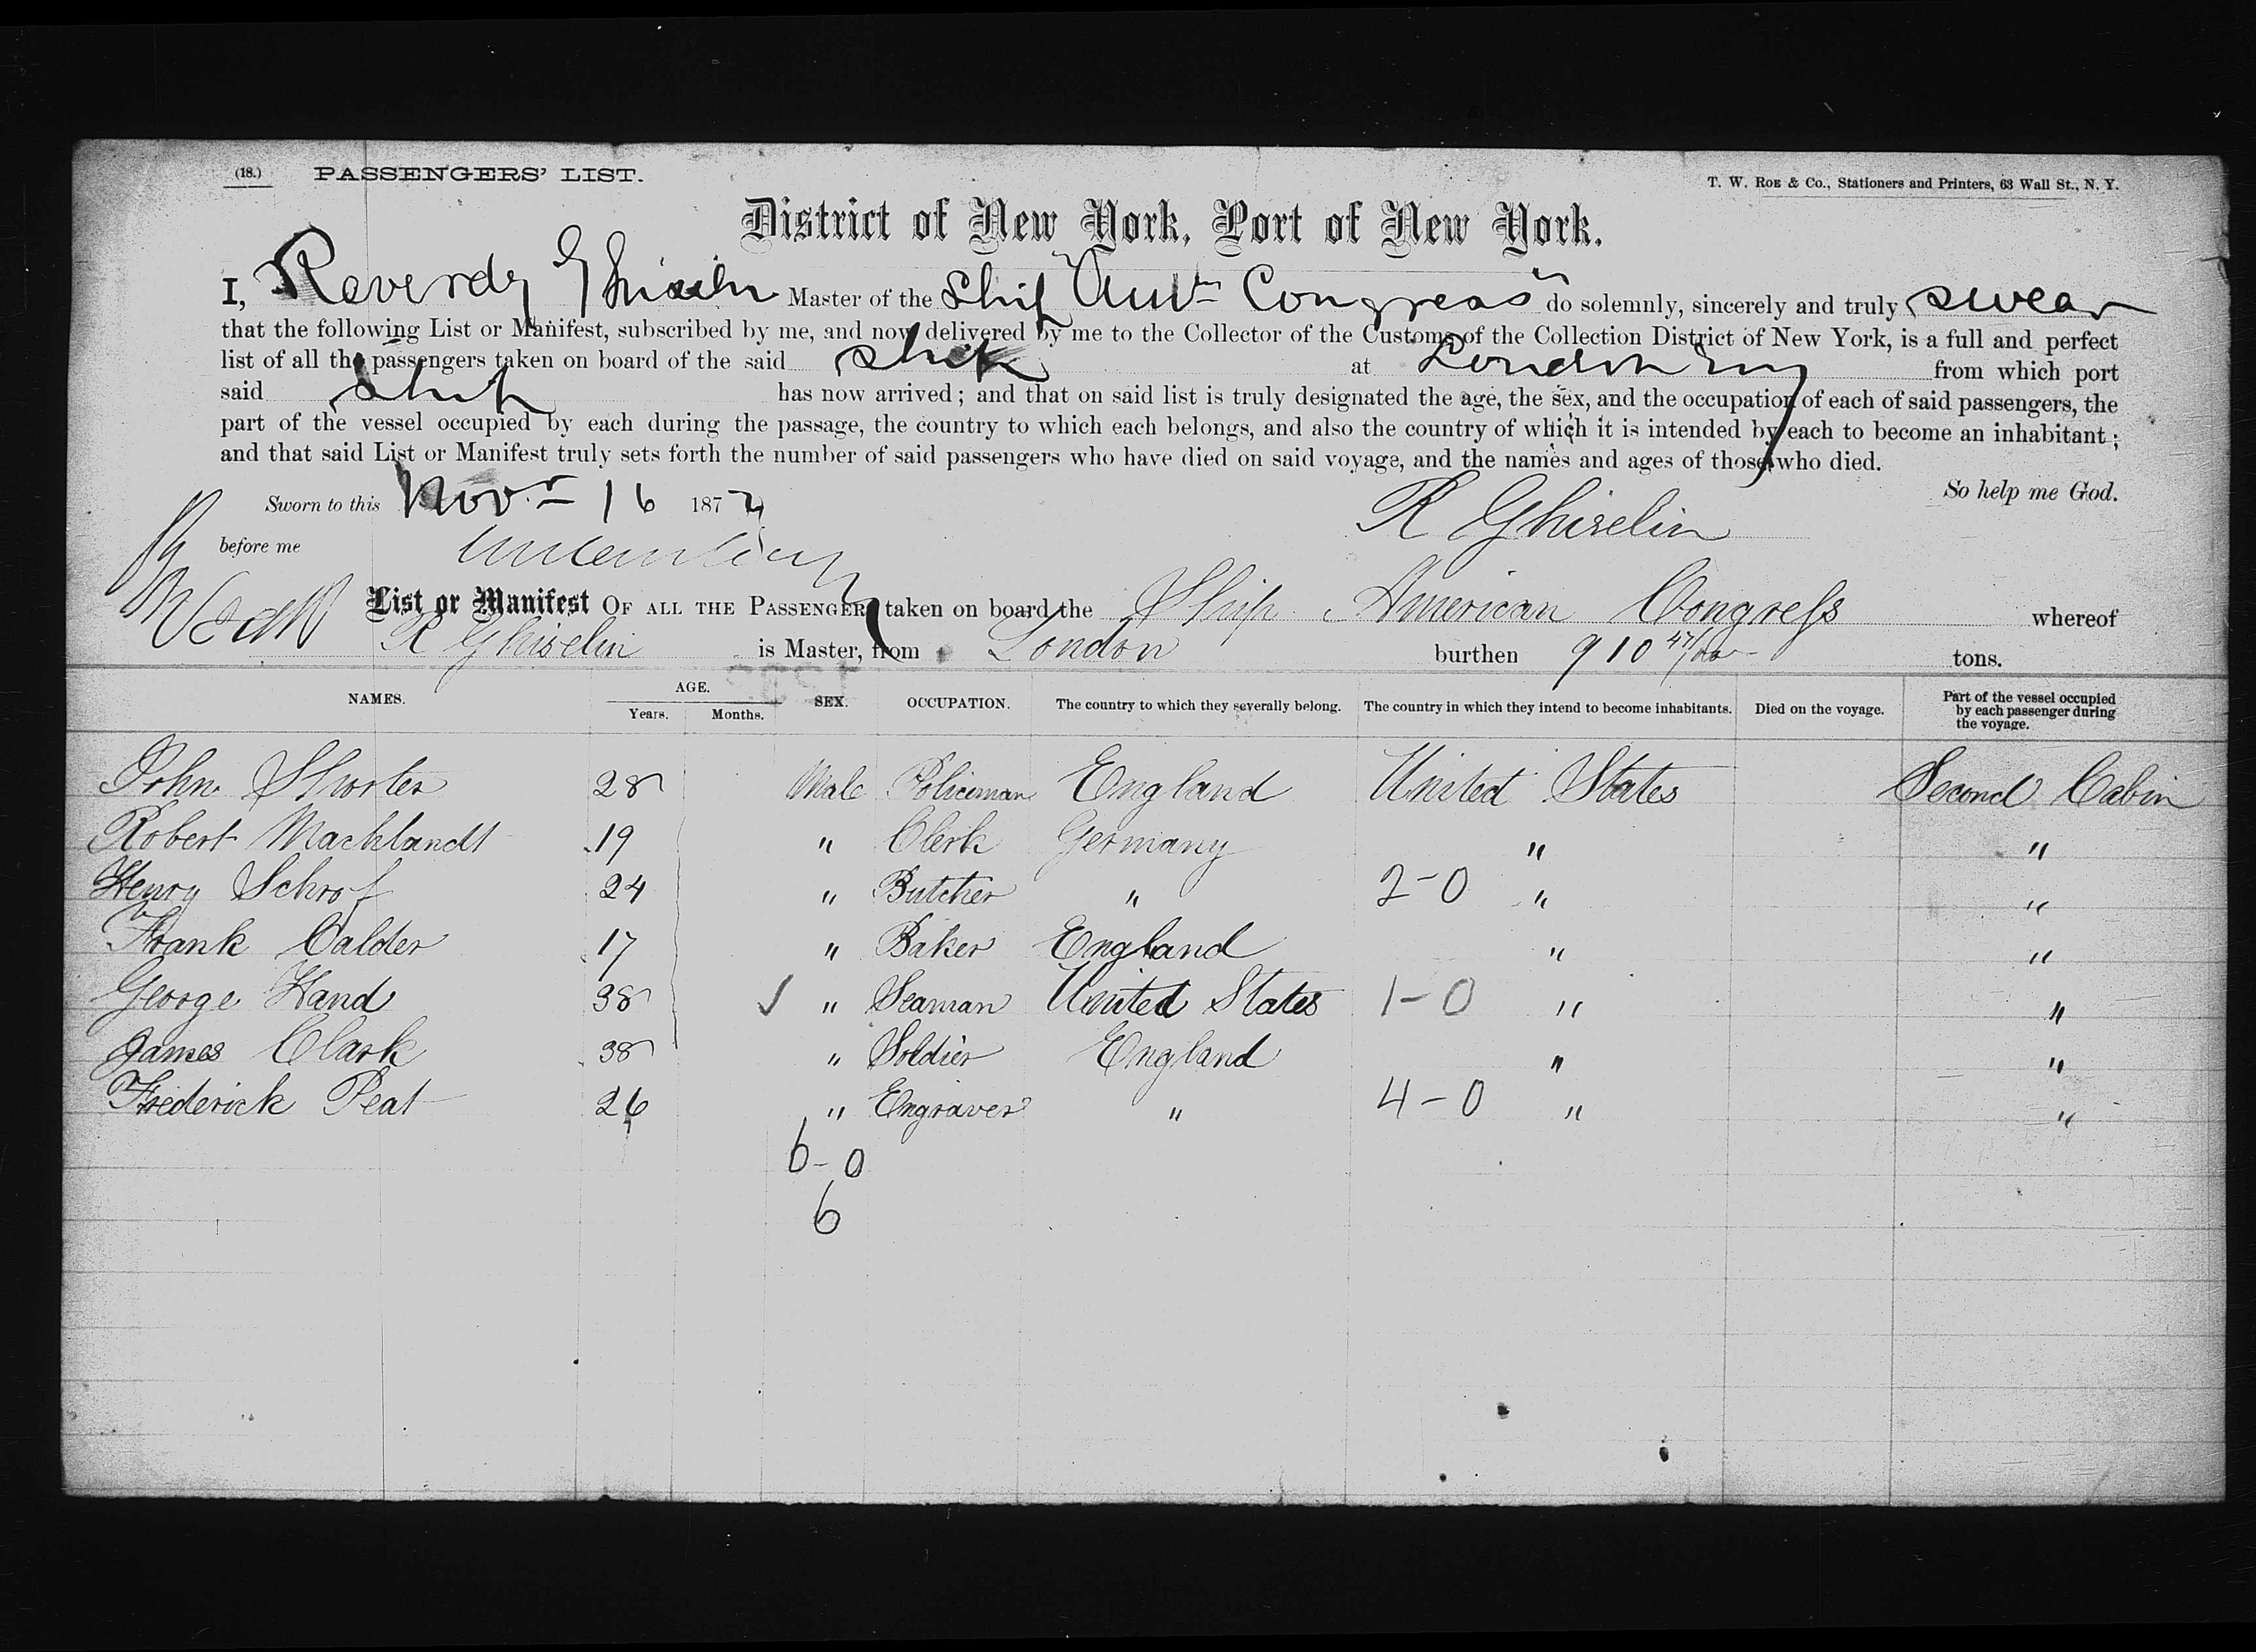 (18.) PASSENGERS' LIST. T. W. ROE & Co., Stationers and Printers, 63 Wall St., N. Y.
District of New York, Port of New York.
I, Reverdy Ghiselin Master of the Ship "Amn Congress" do solemnly, sincerely and truly swear
that the following List or Manifest, subscribed by me, and now delivered by me to the Collector of the Customs of the Collection District of New York, is a full and perfect
list of all the passengers taken on board of the said ship at London Eng from which port
said ship has now arrived; and that on said list is truly designated the age, the sex, and the occupation of each of said passengers, the
part of the vessel occupied by each during the passage, the country to which each belongs, and also the country of which it is intended by each to become an inhabitant;
and that said List or Manifest truly sets forth the number of said passengers who have died on said voyage, and the names and ages of those who died.
So help me God.
Sworn to this Novr 16 1872
R Ghiselin
before me
List or Manifest OF ALL THE PASSENGERS taken on board the Ship American Congress whereof
R Ghiselin is Master, from London burthen 910 47/100 tons.
NAMES. AGE. Years. Months. SEX. OCCUPATION. The country to which they severally belong. The country in which they intend to become inhabitants. Died on the voyage. Part of the vessel occupied by each passenger during the voyage.
John Shorter 28 Male Policeman England United States Second Cabin
Robert Machlandt 19 " Clerk Germany " "
Henry Schrof 24 " Butcher " 2-0 " "
Frank Calder 17 " Baker England " "
George Hand 38 ✓ " Seaman United States 1-0 " "
James Clark 38 " Soldier England " "
Frederick Peat 26 " Engraver " 4-0 " "
6-0
6